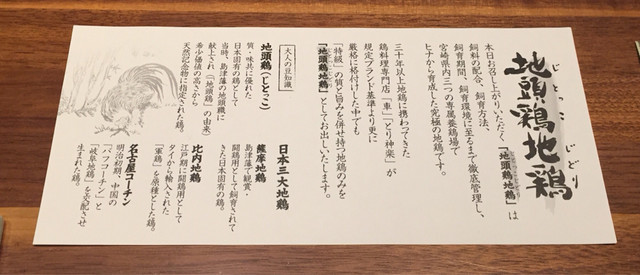 じとっこ じどり
地頭鶏地鶏
本日お召し上がりいただく「地頭鶏地鶏」は
飼料の配合、飼育方法、
飼育期間、飼育環境に至るまで徹底管理し、
宮崎県内三つの専属養鶏場で
ヒナから育成した究極の地鶏です。
三十年以上地鶏に携わってきた
鶏料理専門店「車」「とり神楽」が
規定ブランド基準より更に
厳格に格付けした中でも
「特級」の質と旨みを併せ持つ地鶏のみを
「地頭鶏地鶏」としてお出しいたします。
大人の豆知識
地頭鶏(じとっこ)
質・味共に優れた
日本固有の鶏として
当時、島津藩の地頭職に
献上され（「地頭鶏」の由来）
希少価値の高さから
天然記念物に指定された鶏。
日本三大地鶏
薩摩地鶏
島津藩で観賞・
闘鶏用として飼育されて
きた日本固有の鶏。
比内地鶏
江戸期に闘鶏用として
タイから輸入された
「軍鶏」を原種とした鶏。
名古屋コーチン
明治初期、中国の
「バフコーチン」と
「岐阜地鶏」を交配させ
生まれた鶏。